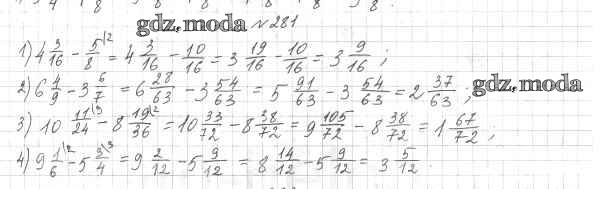 gdz.moda № 281
1) 4 3/16 - 5/8 |2 = 4 3/16 - 10/16 = 3 19/16 - 10/16 = 3 9/16 ;
2) 6 4/9 - 3 6/7 = 6 28/63 - 3 54/63 = 5 91/63 - 3 54/63 = 2 37/63 ; gdz.moda
3) 10 11/24 |3 - 8 19/36 |2 = 10 33/72 - 8 38/72 = 9 105/72 - 8 38/72 = 1 67/72 ;
4) 9 1/6 |2 - 5 3/4 |3 = 9 2/12 - 5 9/12 = 8 14/12 - 5 9/12 = 3 5/12 .